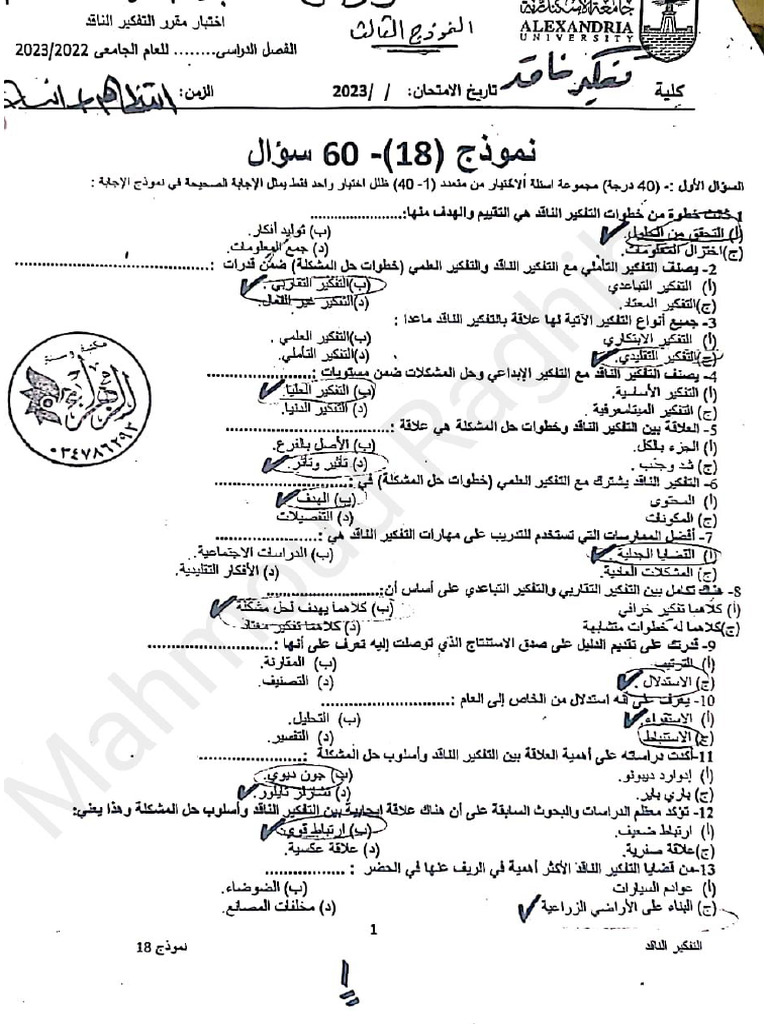 جامعة الإسكندرية
ALEXANDRIA
UNIVERSITY
النموذج الثالث
اختبار مقرر التفكير الناقد
الفصل الدراسى........ للعام الجامعى 2023/2022
كلية
تفكير ناقد
تاريخ الامتحان: / /2023
الزمن:
نموذج (18)- 60 سؤال
السؤال الأول :- (40 درجة) مجموعة اسئلة الاختيار من متعدد (1- 40) ظلل اختيار واحد فقط يمثل الإجابة الصحيحة في نموذج الإجابة :
خطوة من خطوات التفكير الناقد هي التقييم والهدف منها:..................
(أ) التحقق من
(ب) توليد أفكار.
(ج)اختزال المعلومات.
(د) جمع المعلومات.
2- يصنف التفكير التأملي مع التفكير الناقد والتفكير العلمي (خطوات حل المشكلة) ضمن قدرات :..................
(أ) التفكير التباعدي
(ب)التفكير التقاربي.
(ج)التفكير المعتاد.
(د)التفكير غير الفعال.
3- جميع أنواع التفكير الآتية لها علاقة بالتفكير الناقد ماعدا :
(أ) التفكير الابتكاري
(ب)التفكير العلمي.
(ج)التفكير التقليدي.
(د)التفكير التأملي.
4- يصنف التفكير الناقد مع التفكير الإبداعي وحل المشكلات ضمن مستويات :..................
(أ) التفكير الأساسية.
(ب) التفكير العليا.
(ج) التفكير الميتامعرفية
(د) التفكير الدنيا.
5- العلاقة بين التفكير الناقد وخطوات حل المشكلة هي علاقة :..................
(أ) الجزء بالكل.
(ب) الأصل بالفرع.
(ج) شد وجذب.
(د) تأثير وتأثر.
6- التفكير الناقد يشترك مع التفكير العلمي (خطوات حل المشكلة) في :..................
(أ) المحتوى
(ب) الهدف
(ج) المكونات
(د) التفصيلات
7- أفضل الممارسات التي تستخدم للتدريب على مهارات التفكير الناقد هي :..................
(أ) القضايا الجدلية.
(ب) الدراسات الاجتماعية.
(ج) المشكلات
(د) الأفكار التقليدية.
8- هناك تكامل بين التفكير التقاربي والتفكير التباعدي على أساس أن:..................
(أ) كلاهما تفكير خرافي
(ب) كلاهما يهدف لحل مشكلة
(ج)كلاهما له خطوات متشابهة
(د) كلاهما تفكير معتاد
9- قدرتك على تقديم الدليل على صدق الاستنتاج الذي توصلت إليه تعرف على أنها :..................
(أ) الترتيب
(ب) المقارنة.
(ج) الاستدلال.
(د) التصنيف.
10- يعرف على أنه استدلال من الخاص إلى العام :..................
(أ) الاستقراء
(ب) التحليل.
(ج) الاستنباط
(د) التفسير.
11- أكدت دراسته على أهمية العلاقة بين التفكير الناقد وأسلوب حل المشكلة :..................
(أ) إدوارد ديبونو.
(ب) جون ديوي.
(ج) باري باير.
(د) تشارلز تايلور.
12- تؤكد معظم الدراسات والبحوث السابقة على أن هناك علاقة إيجابية بين التفكير الناقد وأسلوب حل المشكلة وهذا يعني:
(أ) ارتباط ضعيف.
(ب) ارتباط قوي.
(ج)علاقة صفرية.
(د) علاقة عكسية.
13-من قضايا التفكير الناقد الأكثر أهمية في الريف عنها في الحضر :..................
(أ) عوادم السيارات
(ب) الضوضاء.
(ج) البناء على الأراضي الزراعية
(د) مخلفات المصانع.
1
التفكير الناقد
نموذج 18
٠٣٤٧٨٦٢٩٣
Mahmoud Raghib